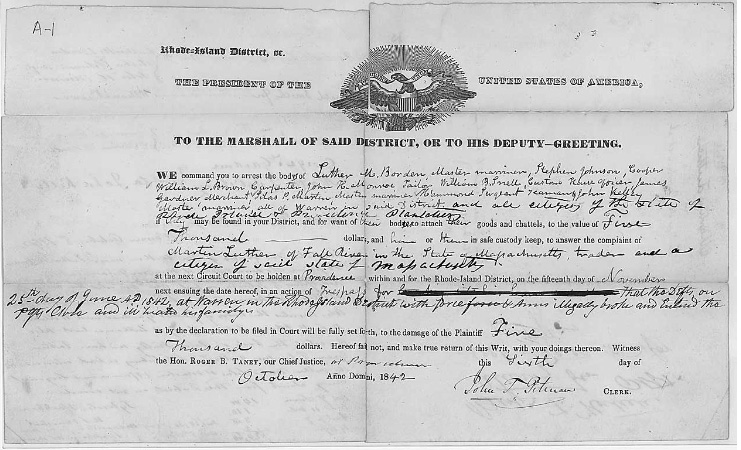 A-1
Rhode-Island District, sc.
THE PRESIDENT OF THE UNITED STATES OF AMERICA,
TO THE MARSHALL OF SAID DISTRICT, OR TO HIS DEPUTY—GREETING.
WE command you to arrest the body of Luther M. Borden Master marriner, Stephen Johnson, Cooper
William L. Brown Carpenter, John H. Monroe Tailor William B. Snell Custom House officer, James
Gardner Merchant, Silas P. Martin Master marriner Hammond Sergeant yeoman & John Kelley
Master marriner all of Warren in said District and all citizens of the State of
Rhode Island & Providence Plantations
if may be found in your District, and for want of their body, to attach their goods and chattels, to the value of Five
Thousand dollars, and him or them in safe custody keep, to answer the complaint of
Martin Luther of Fall River in the State of Massachusetts, trader and a
citizen of said state of Massachusetts
at the next Circuit Court to be holden at Providence within and for the Rhode-Island District, on the fifteenth day of November
next ensuing the date hereof, in an action of Trespass for that the Defts, on
25th day of June AD 1842, at Warren in the Rhode Island District with force & Arms illegally broke and Entered the
Plffs Close and ill treated his family &c
as by the declaration to be filed in Court will be fully set forth, to the damage of the Plaintiff Five
Thousand dollars. Hereof fail not, and make true return of this Writ, with your doings thereon. Witness
the Hon. ROGER B. TANEY, our Chief Justice, at Providence this Sixth day of
October Anno Domini, 1842
John T. Pitman CLERK.